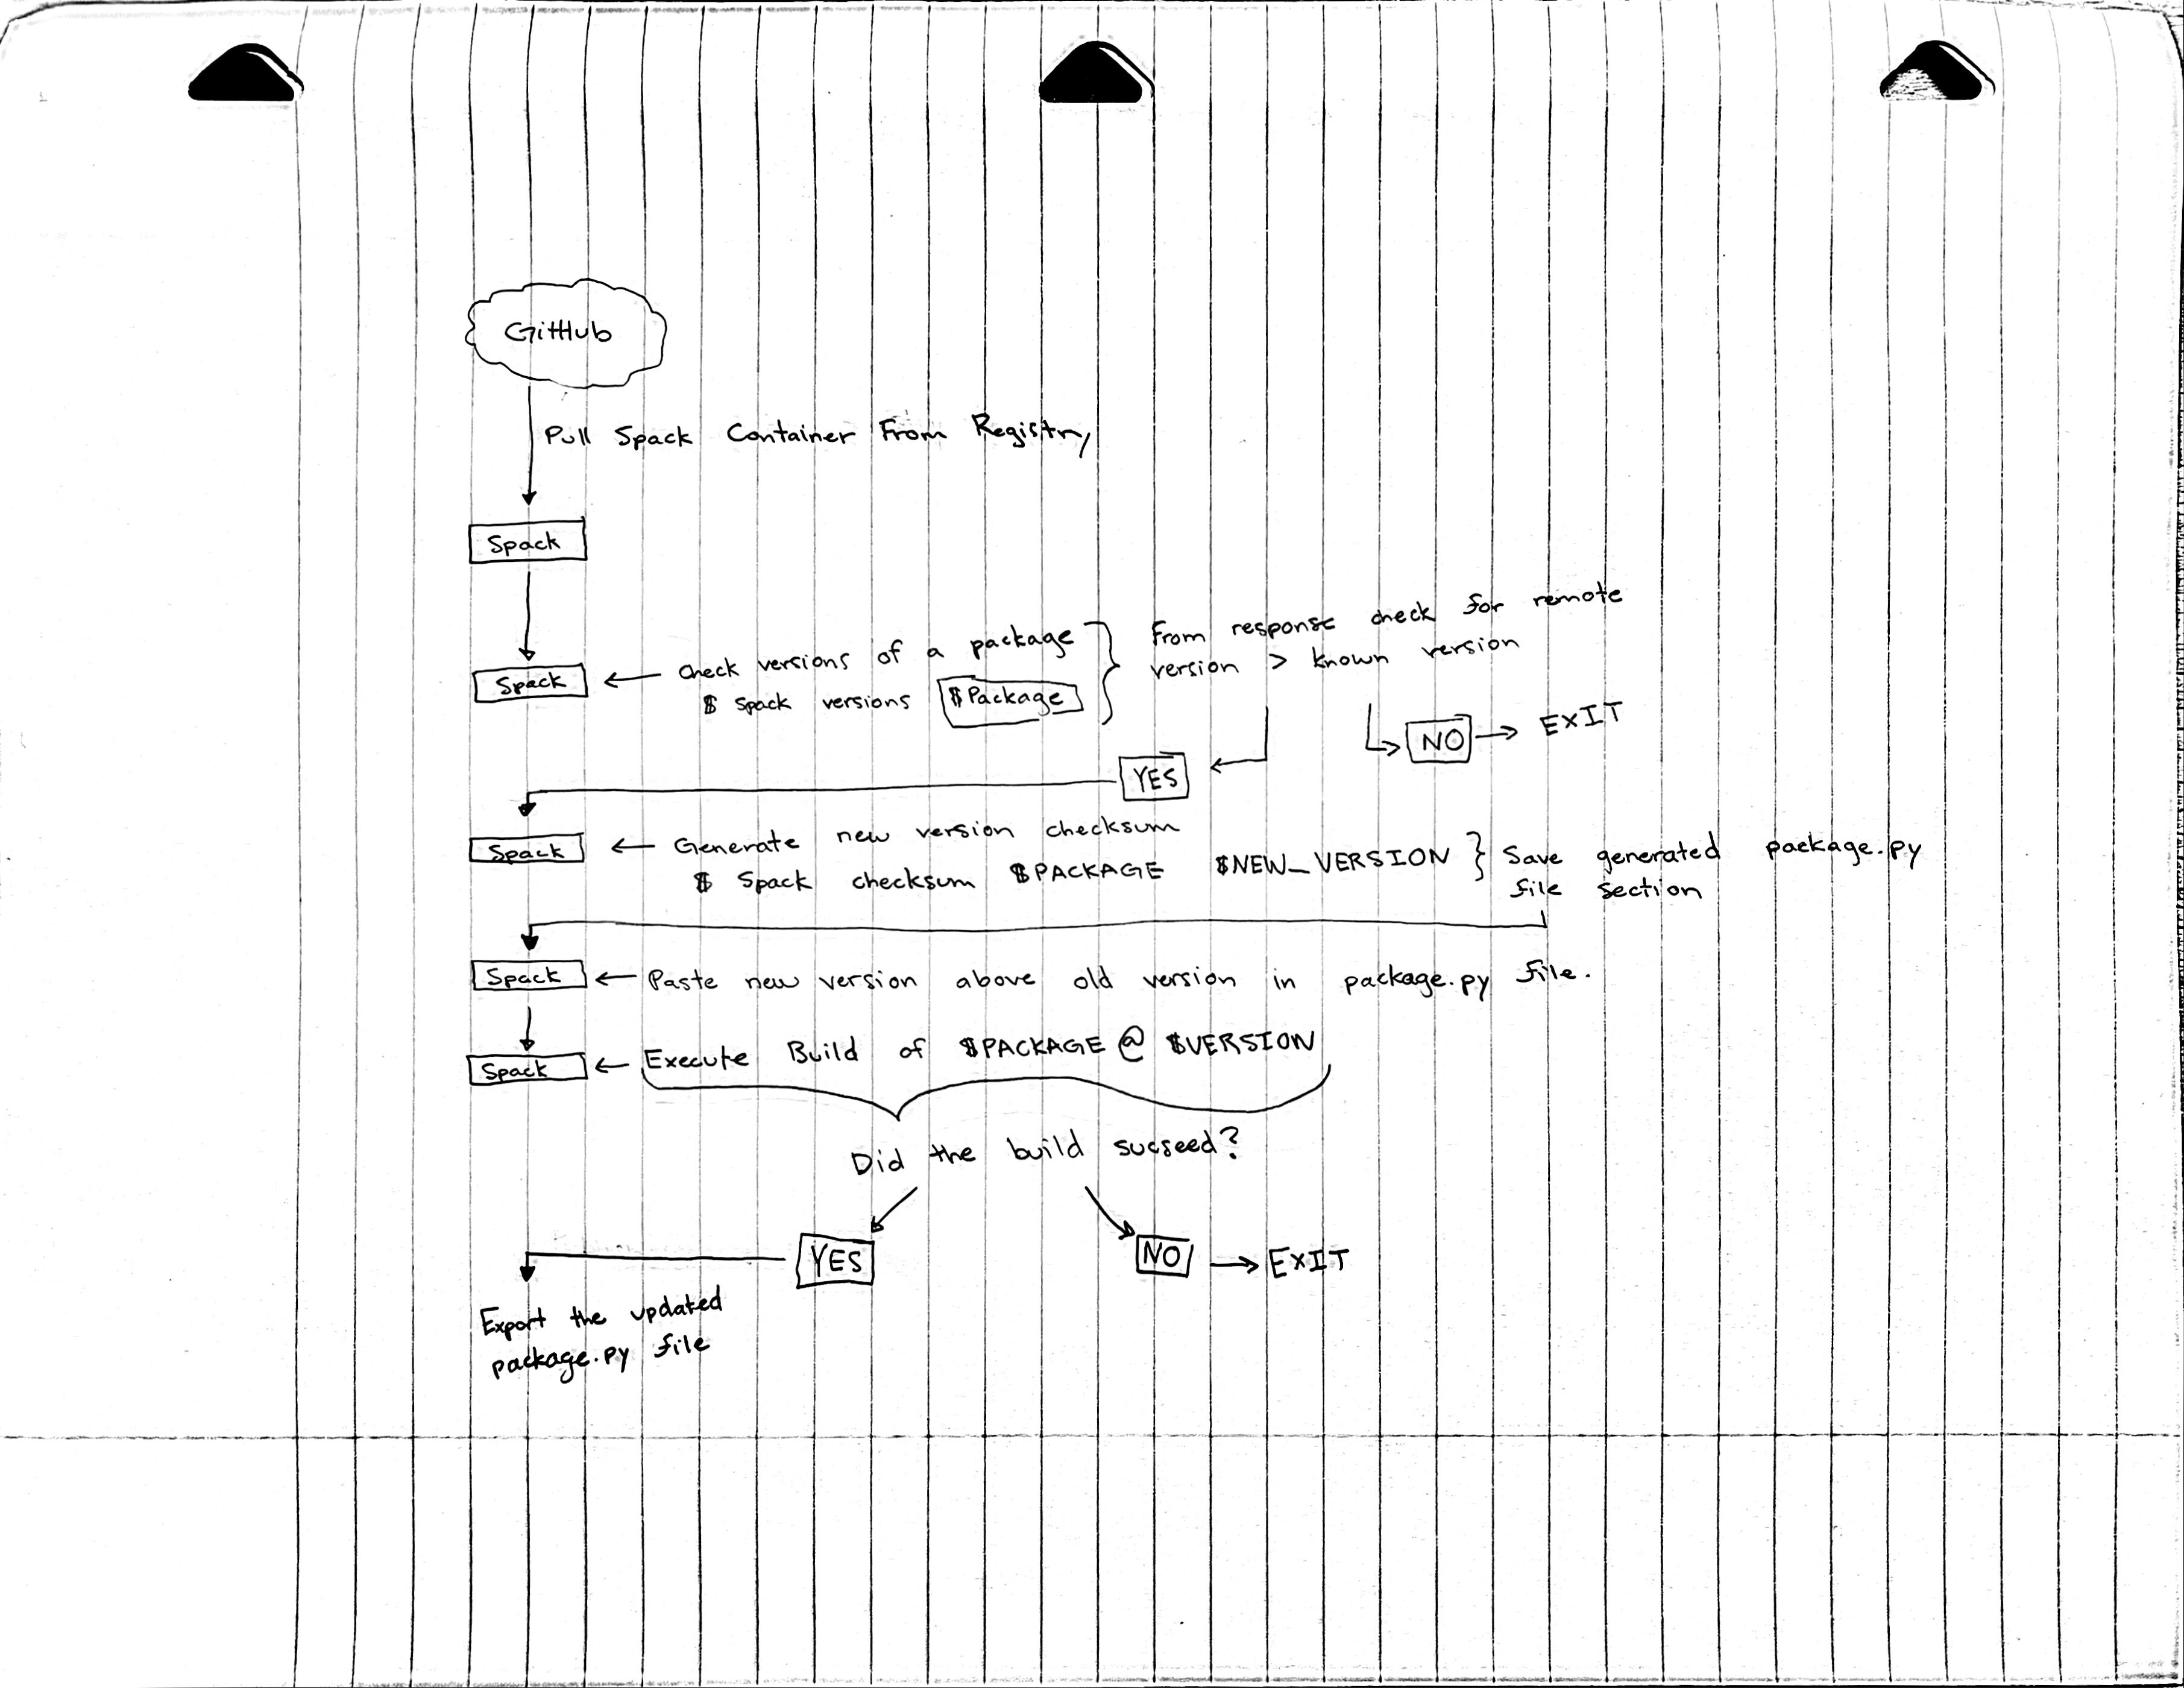 GitHub
Pull Spack Container From Registry
Spack
Spack ← Check versions of a package
$ Spack versions $Package
From response check for remote
version > known version
NO → EXIT
YES
Spack ← Generate new version checksum
$ Spack checksum $PACKAGE $NEW_VERSION
Save generated package.py
file section
Spack ← Paste new version above old version in package.py file.
Spack ← Execute Build of $PACKAGE @ $VERSION
Did the build sucseed?
YES
NO → EXIT
Export the updated
package.py file